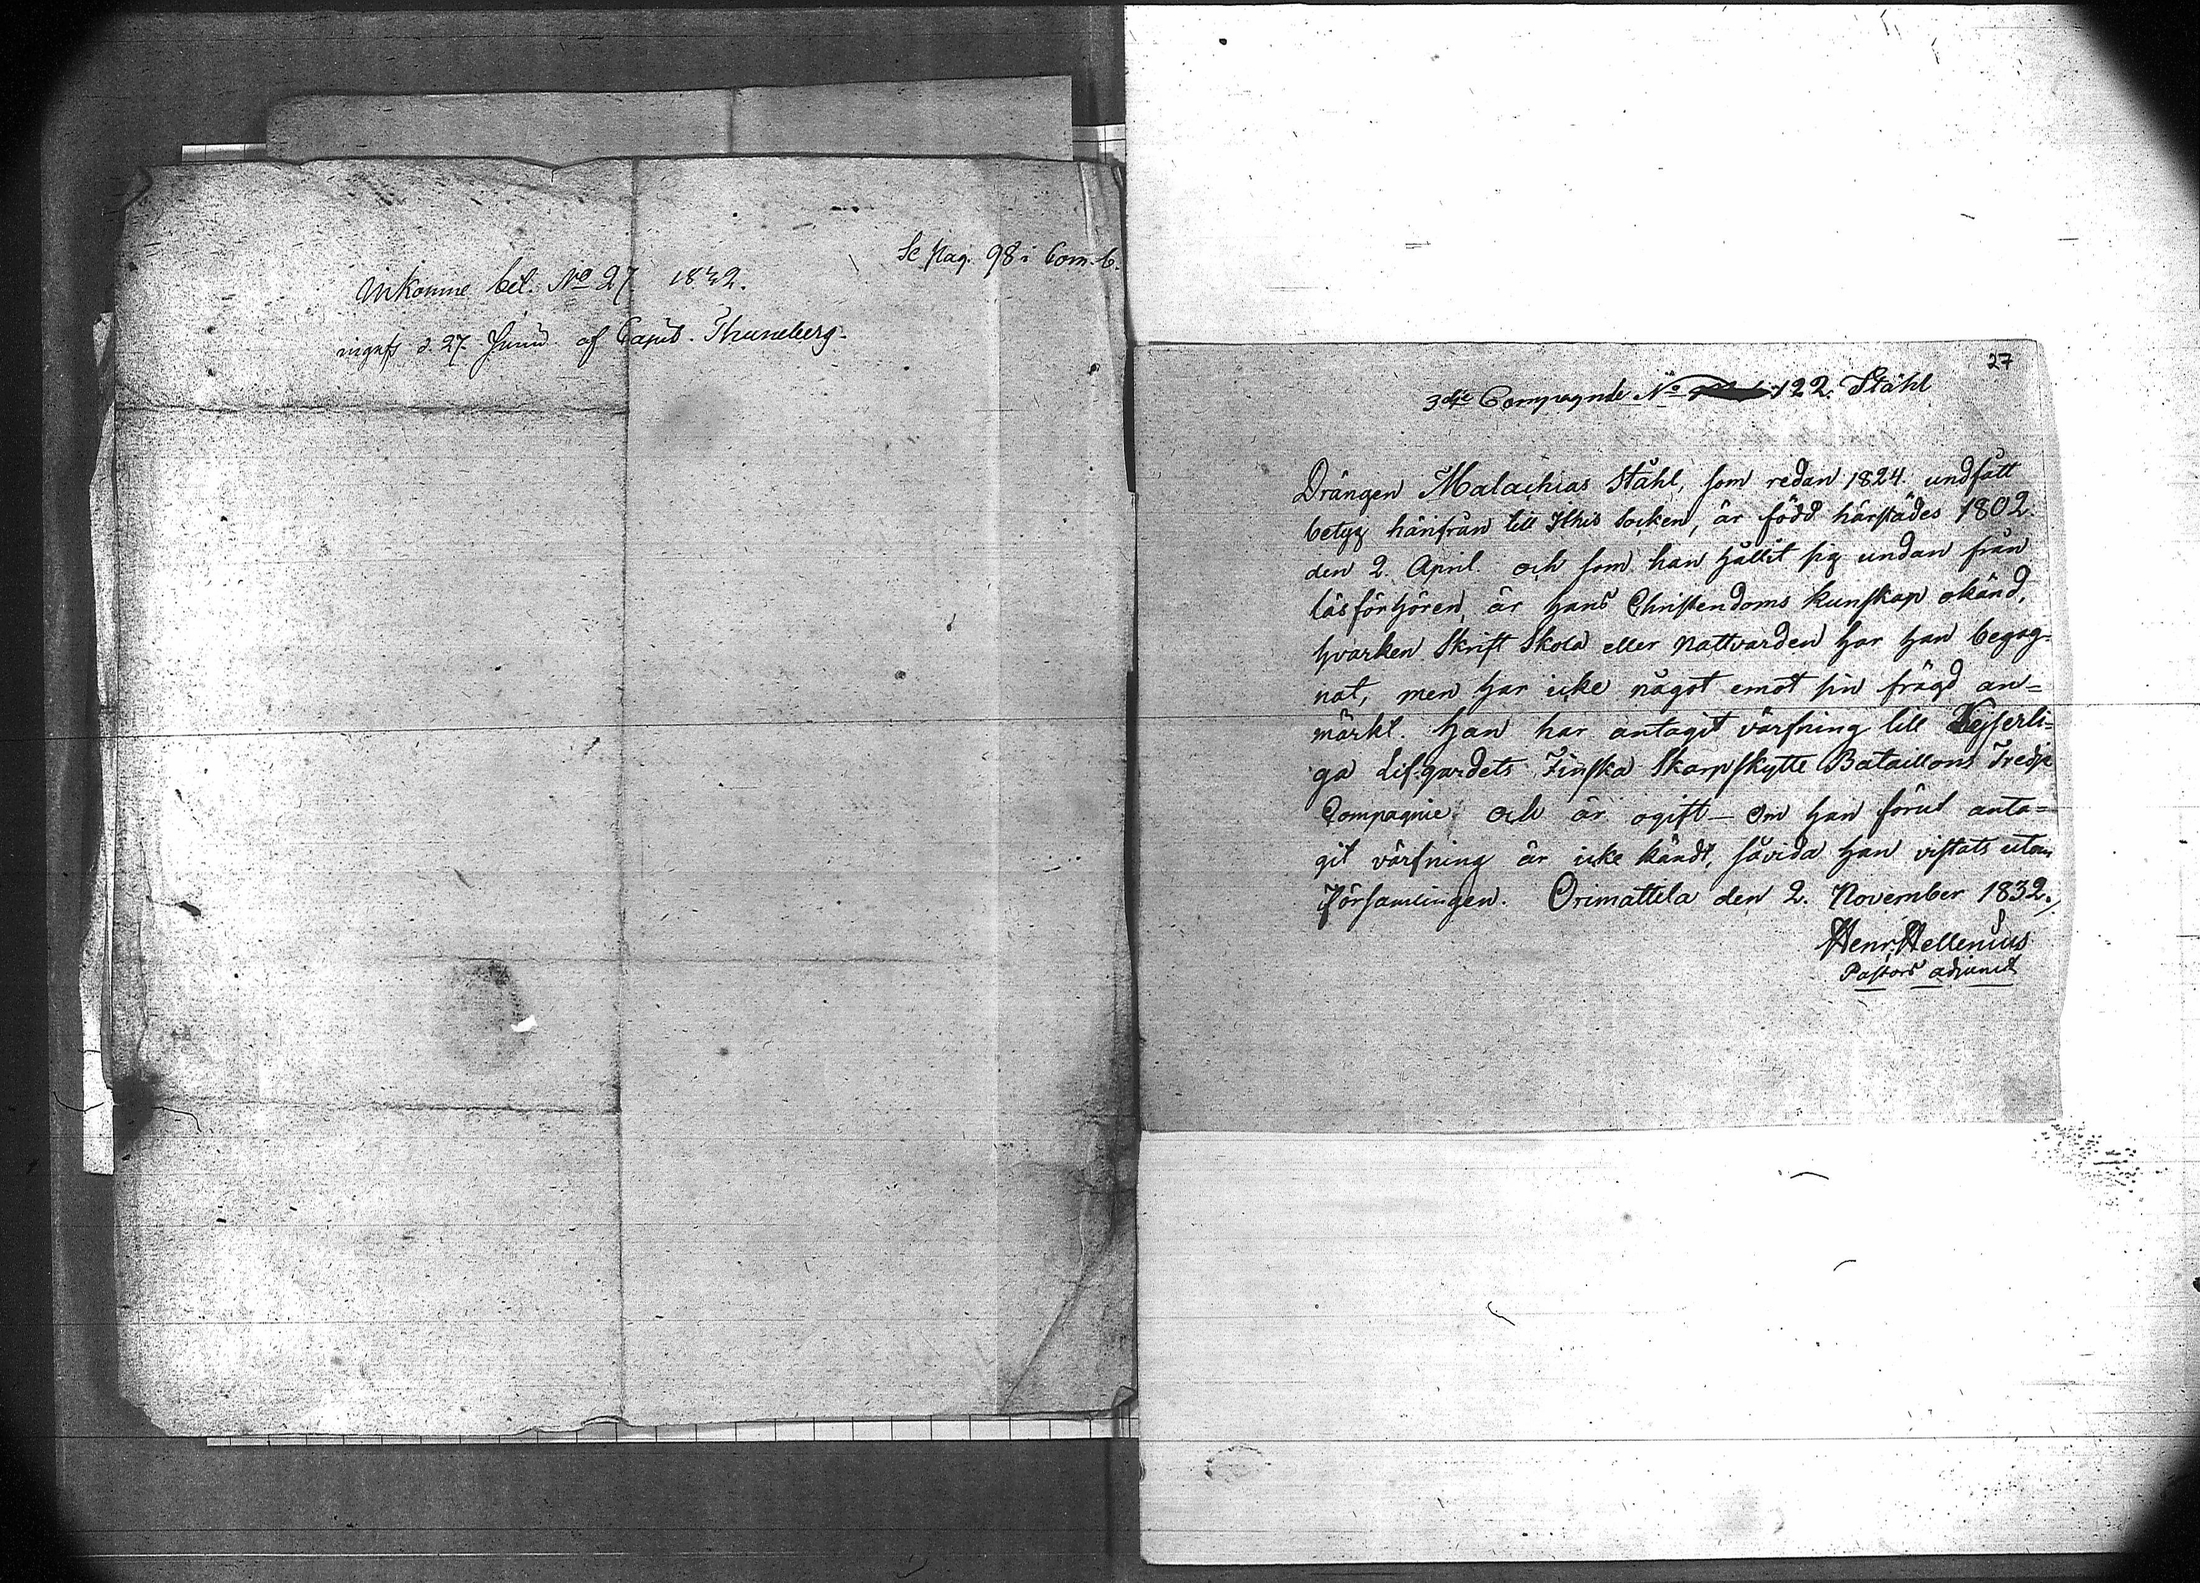 Se pag. 98 i Com. b.
Inkomne bet. No 27 1832.
ingafs d. 27 Junii af Capit. Thuneberg.
27
3dje Compagnie No 122. Ståhl
Drängen Malachias Ståhl, som redan 1824. undfått
betyg härifrån till Ithis Socken, är född härstädes 1802.
den 2. April och som han hållit sig undan från
läsförhören, är hans Christendoms kunskap okänd,
hvarken Skrift Skola eller Nattvarden har han begag-
nat, men har icke något emot sin frägd an=
märkt. Han har antagit värfning till Kejserli=
ga Lif-gardets Finska Skarpskytte Bataillons Tredje
Compagnie och är ogift — Om han förut anta=
git värfning är icke kändt, såvida han vistats utom
Församlingen. Orimattila den 2. November 1832./.
Henr. Hellenius
Pastors adjunct